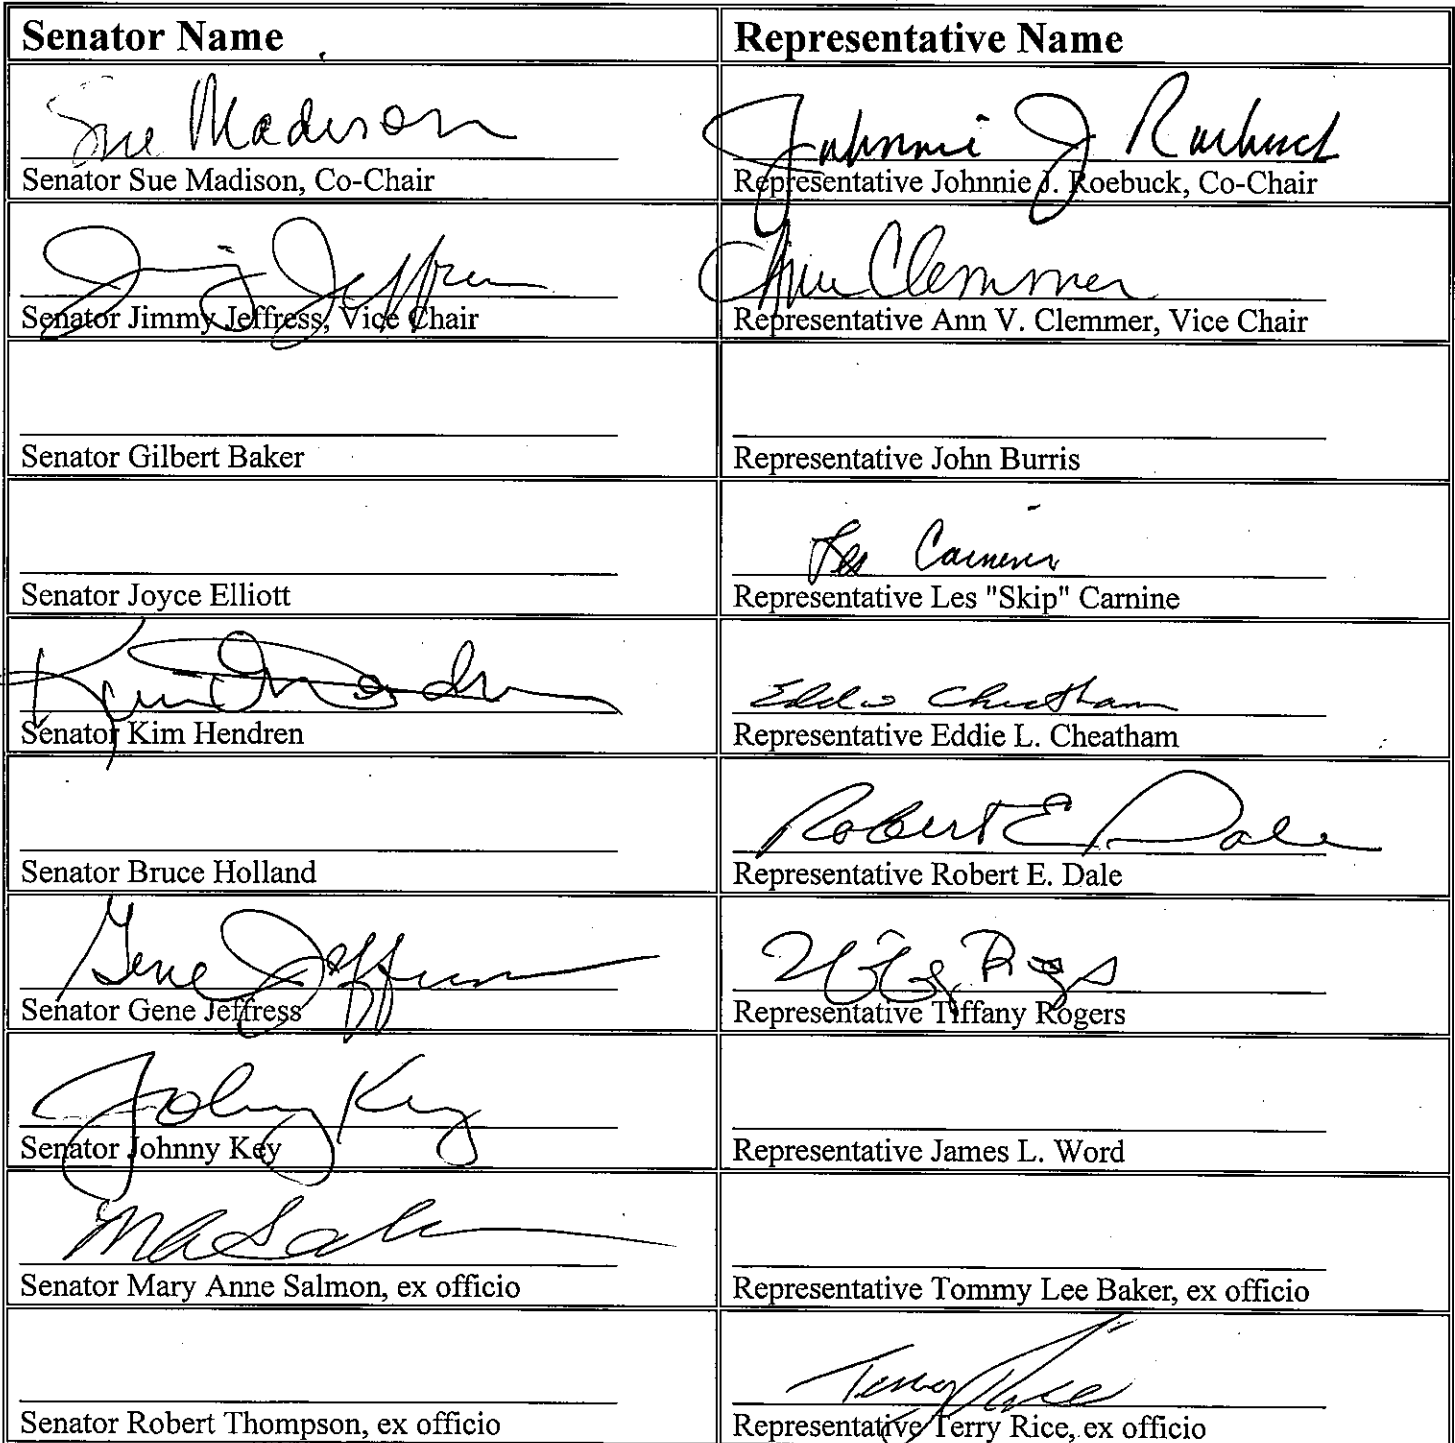 Senator Name
Representative Name
Sue Madison
Senator Sue Madison, Co-Chair
Johnnie J Roebuck
Representative Johnnie J. Roebuck, Co-Chair
Jimmy Jeffress
Senator Jimmy Jeffress, Vice Chair
Ann Clemmer
Representative Ann V. Clemmer, Vice Chair
Senator Gilbert Baker
Representative John Burris
Senator Joyce Elliott
Les Carnine
Representative Les "Skip" Carnine
Kim Hendren
Senator Kim Hendren
Eddie Cheatham
Representative Eddie L. Cheatham
Senator Bruce Holland
Robert E. Dale
Representative Robert E. Dale
Gene Jeffress
Senator Gene Jeffress
Representative Tiffany Rogers
Johnny Key
Senator Johnny Key
Representative James L. Word
MA Salmon
Senator Mary Anne Salmon, ex officio
Representative Tommy Lee Baker, ex officio
Senator Robert Thompson, ex officio
Terry Rice
Representative Terry Rice, ex officio